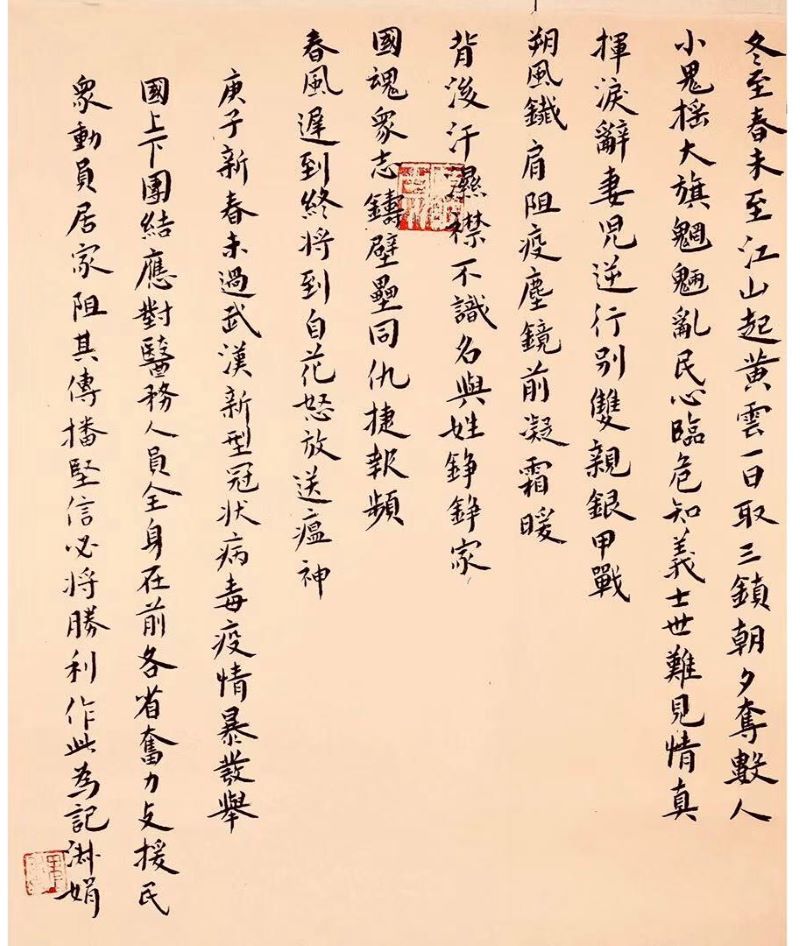 冬至春未至江山起黄雲一日取三鎮朝夕奪數人
小鬼摇大旗魍魎亂民心臨危知義士世難見情真
揮淚辭妻児逆行别雙親銀甲戰
朔風鐵肩阻疫塵鏡前凝霜暖
背後汗濕襟不識名與姓錚錚家
國魂衆志鑄壁壘同仇捷報頻
春風遲到終将到自花怒放送瘟神
庚子新春未過武漢新型冠状病毒疫情暴發舉
國上下團結應對醫務人員全身在前各省奮力支援民
衆動員居家阻其傳播堅信必将勝利作此為記淋娟